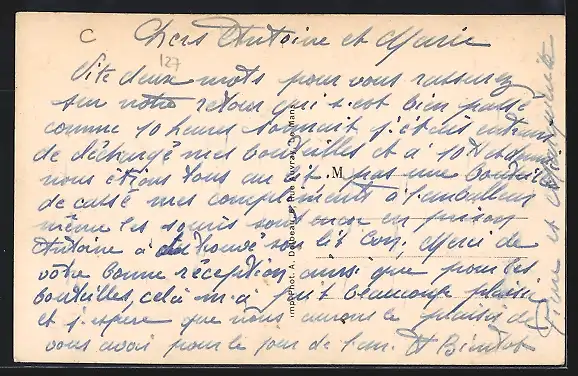 C
Chers Antoine et Marie
127
Vite deux mots pour vous rassurez
sur notre retour qui s'est bien passé
comme 10 heures sonnait j'étais entrain
de déchargé mes bouteilles et a 10H et demi
nous étions tous au lit. pas une bouteille
M
de cassé mes compliments à l'emballeur
même les souris sont encore en prison
Antoine à du trouvé son lit bon, Merci de
votre bonne réception ainsi que pour les
bouteilles, celà m'a fait beaucoup plaisir
et j'espère que nous aurons le plaisir de
vous avoir pour le jour de l'an. A Bientot
Pierre et
Imp. Phot. A. Dolbeau, Rue Auvray, Le Mans